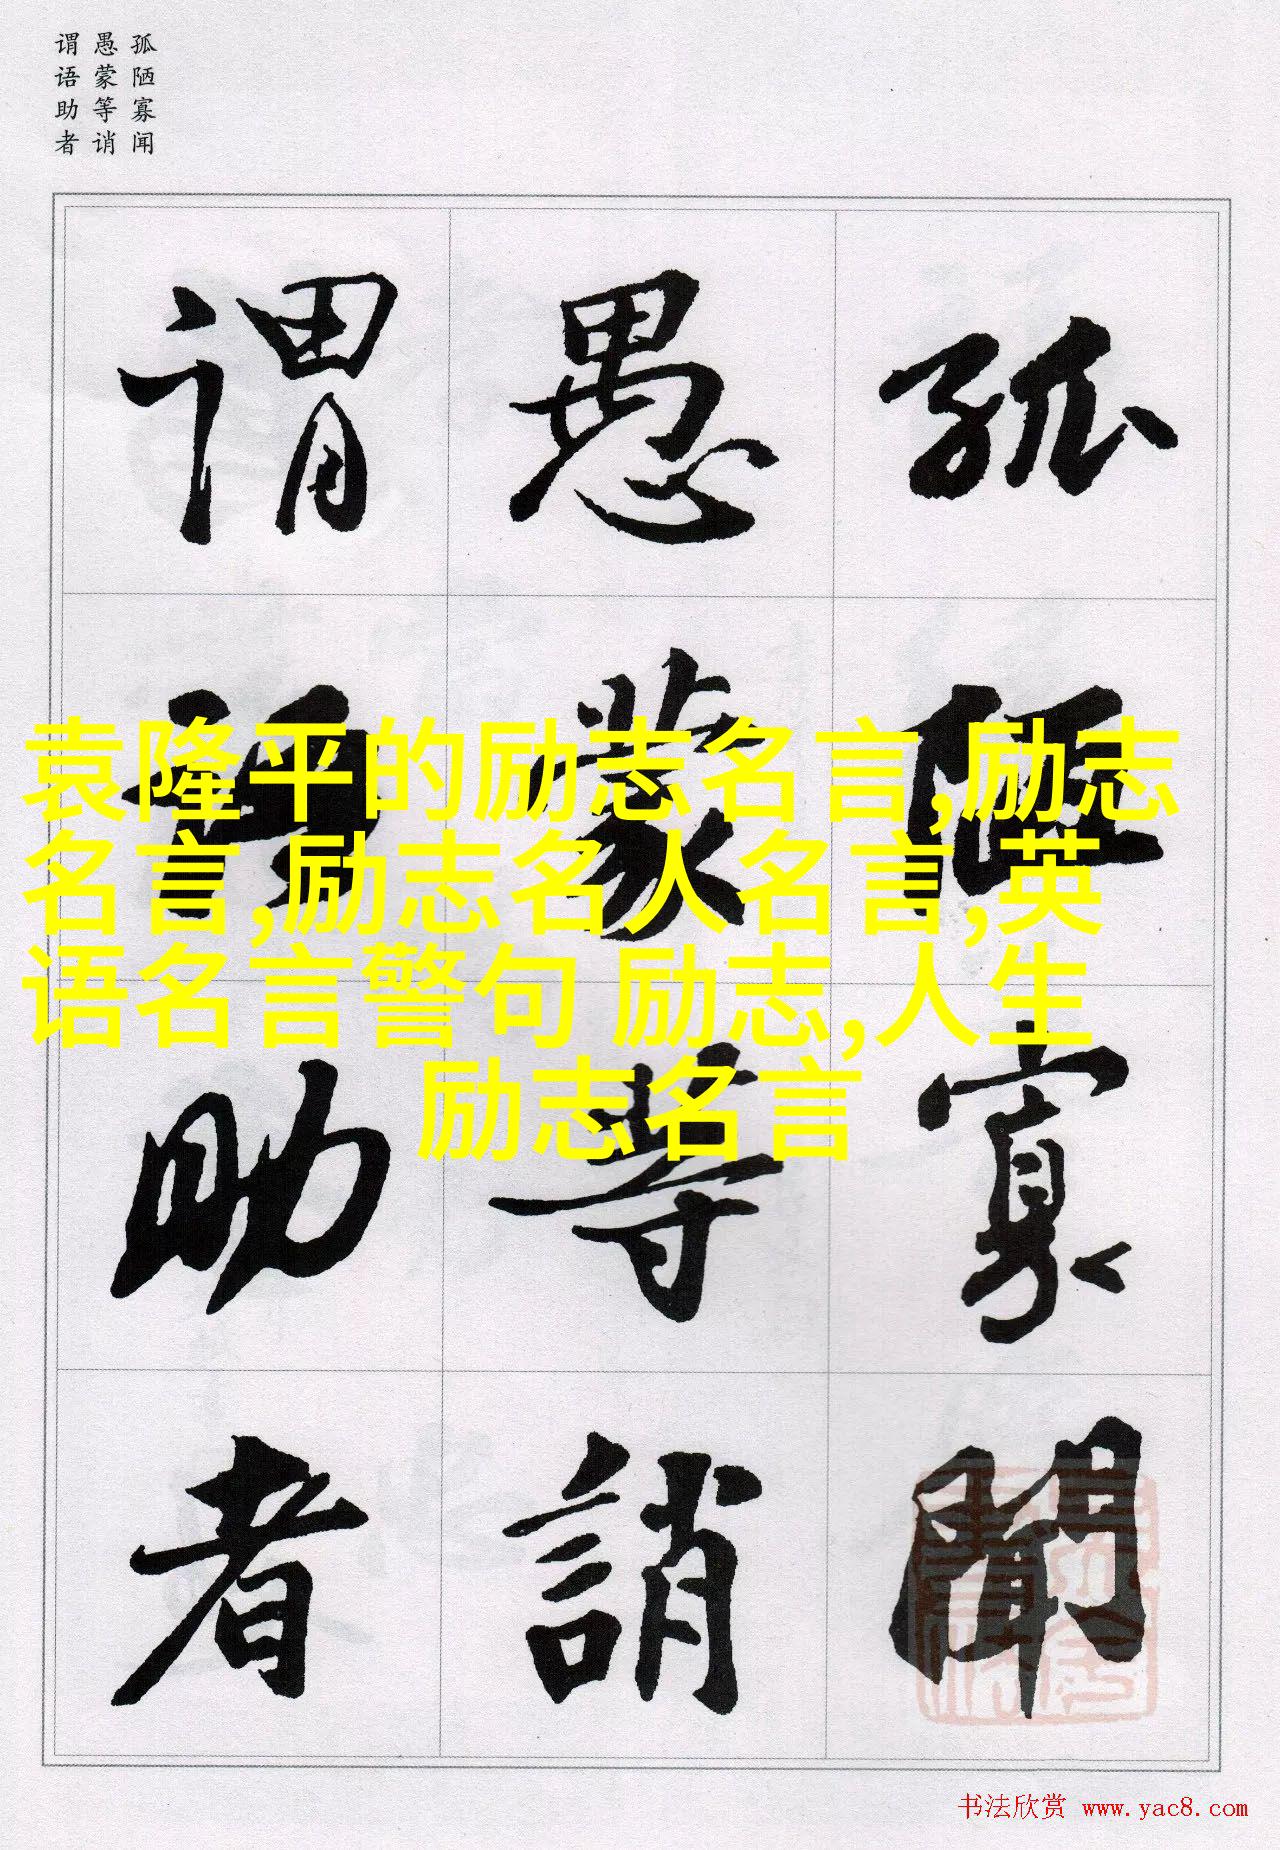 孤陋寡闻
愚蒙等诮
谓语助者
孤陋寡聞
愚蒙等誚
谓语助者
袁隆平的励志名言,励志
名言,励志名人名言,英
语名言警句 励志,人生
励志名言
书法欣赏 www.yac8.com